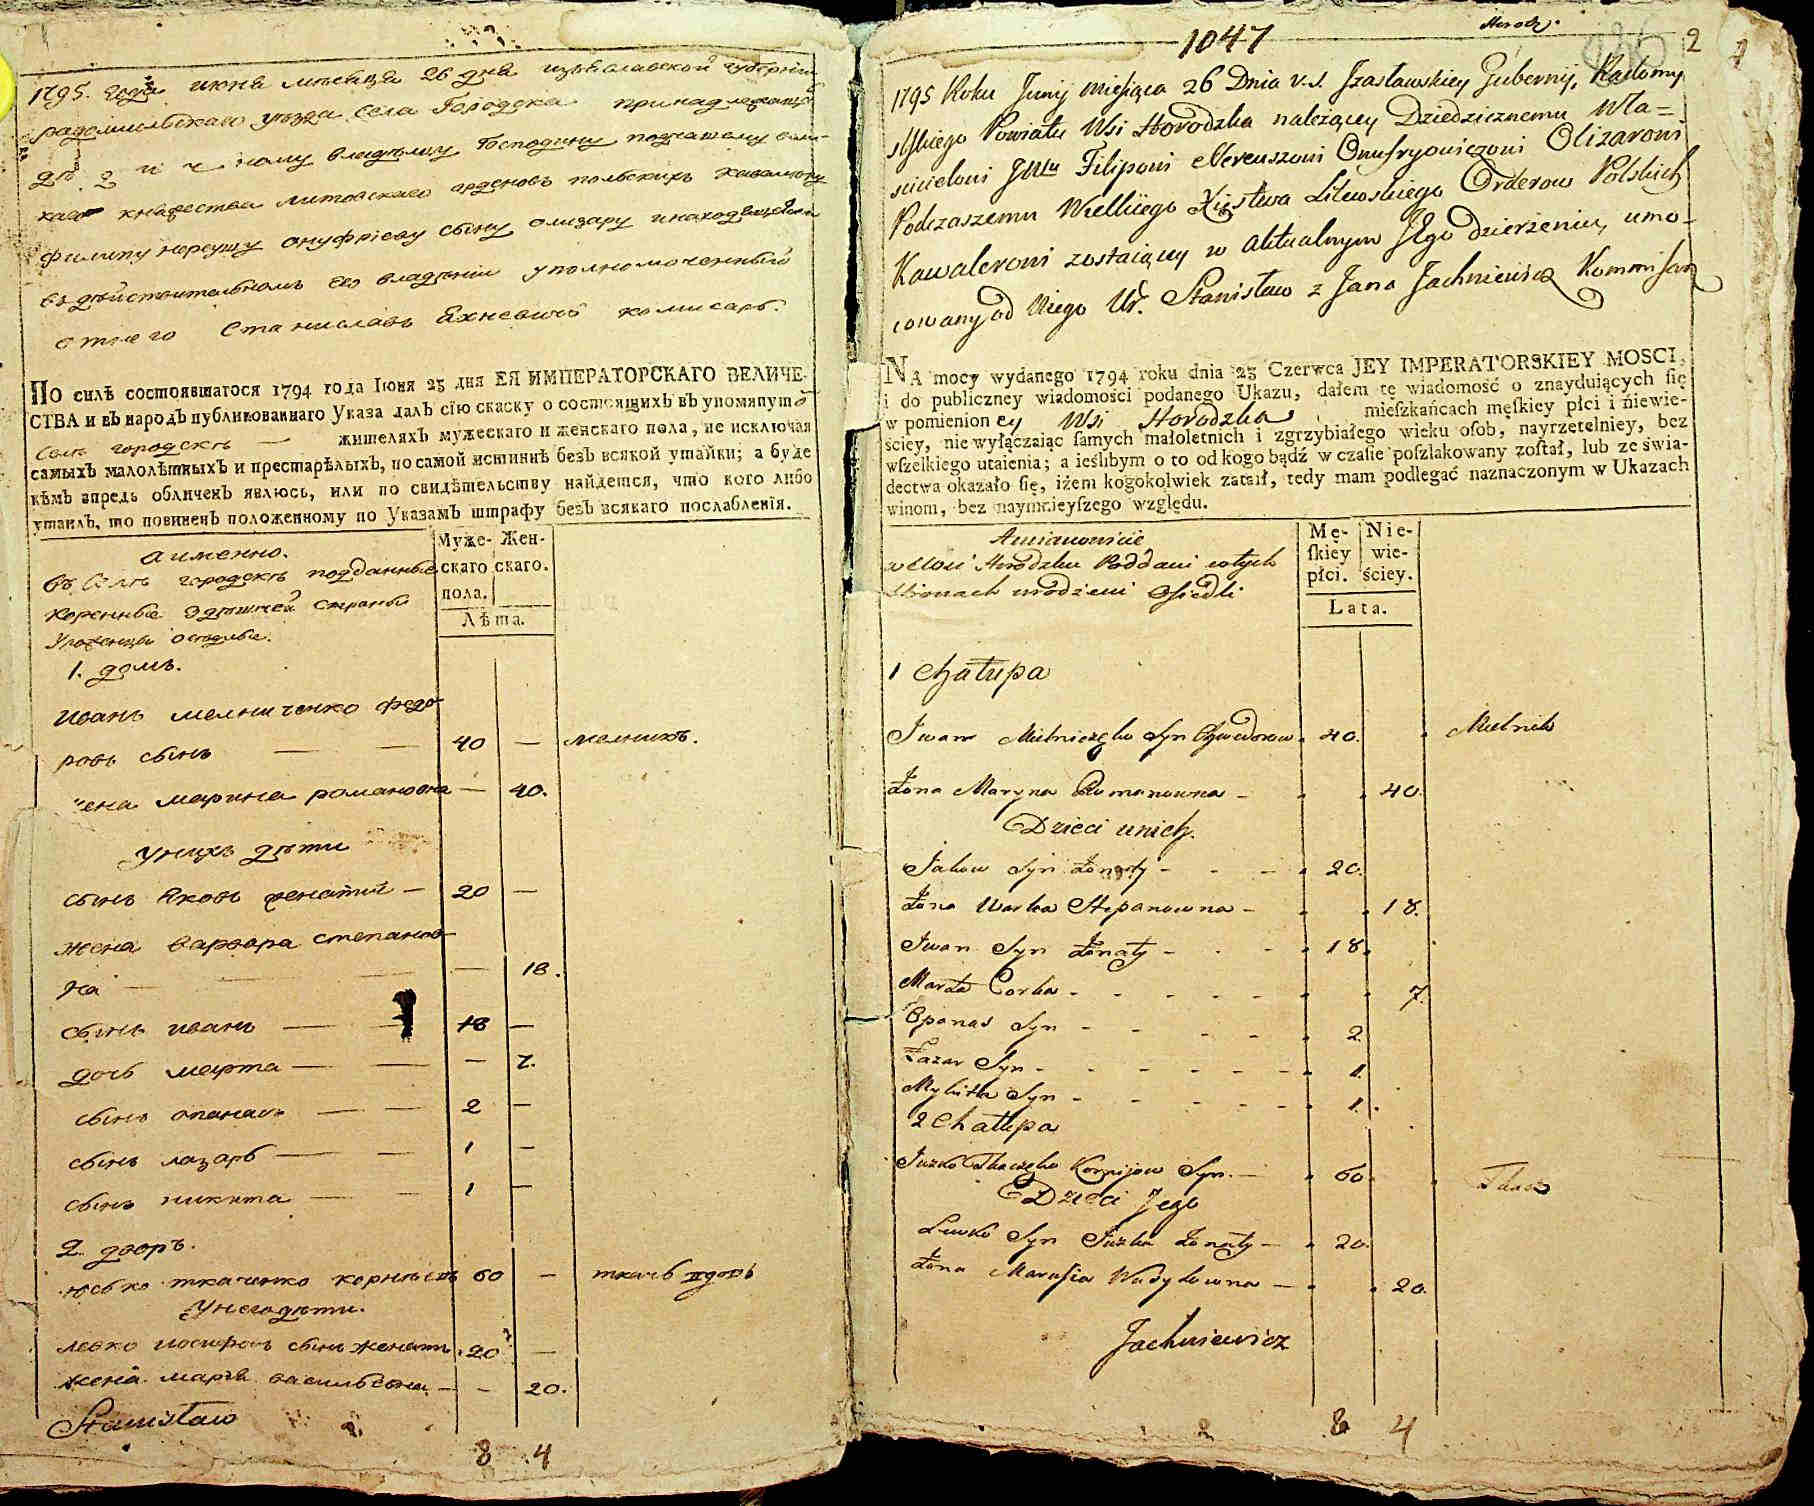 1795. года июня месяца 26 дня изъяславской губернїи
радомыльскаго уезда села Городска принадлежащего
господину подчашему вели-
каго княжества литовскаго орденовъ польскихъ кавалеру
филипу нереушу ануфрїеву сыну олизару и находящегося
въ действительномъ его владенїи уполномоченный
от него Станиславъ Яхневичъ комисаръ.
ПО силѣ состоявшагося 1794 года Іюня 23 дня ЕЯ ИМПЕРАТОРСКАГО ВЕЛИЧЕ-
СТВА и въ народъ публикованнаго Указа далъ сїю скаску о состоящихъ въ упомянуто
селе городске — жителяхъ мужескаго и женскаго пола, не исключая
самыхъ малолѣтныхъ и престарѣлыхъ, по самой истиннѣ безъ всякой утайки; а буде
кѣмъ впредь обличенъ явлюсь, или по свидѣтельству найдется, что кого либо
утаилъ, то повиненъ положенному по Указамъ штрафу безъ всякаго послабленія.
а именно.
въ селе городске подданные
коренные здешней страны
уроженцы оседлые.
Муже-скаго пола.
Жен-скаго.
Лѣта.
1. домъ.
иванъ мелниченко федо-
ровъ сынъ — — 40 — мелникъ.
жена марина романовна — 40.
у нихъ дети
сынъ яковъ женатий — 20 —
жена варвара степанов-
на — — — 18.
сынъ иванъ — — 18 —
дочь марта — — — 7.
сынъ опанасъ — — 2 —
сынъ лазарь — — 1 —
сынъ никита — — 1 —
2 дворъ.
юсько ткаченко корнеевъ 60 — ткачь вдовъ
у него дети.
левко иосифовъ сынъ женатъ 20 —
жена марья васильевна — — 20.
Stanisław
8 4
1047
Horodz.
2
1795 Roku Junij miesiąca 26 Dnia v.s. Izasławskiey Gubernij, Radomy
slskiego Powiatu Wsi Horodzka należący Dziedzicznemu Wła=
scicielowi JWu Filiponi Nereuszowi Onufryowiczowi Olizarowi
Podczaszemu Wielkiego Xięstwa Litewskiego Orderow Polskich
Kawalerowi zostaiącey w aktualnym JEgo dzierżeniu, umo-
cowany od Niego Ur. Stanisław z Jana Jachniewicz Kommisarz
NA mocy wydanego 1794 roku dnia 23 Czerwca JEY IMPERATORSKIEY MOSCI,
i do publiczney wiadomości podanego Ukazu, dałem tę wiadomość o znayduiących się
w pomienioney Wsi Horodzka mieszkańcach męskiey płci i niewie-
ściey, nie wyłączaiąc samych małoletnich i zgrzybiałego wieku osob, nayrzetelniey, bez
wszelkiego utaienia; a ieślibym o to od kogo bądź w czasie poszlakowany został, lub ze świa-
dectwa okazało się, iżem kogokolwiek zataił, tedy mam podlegać naznaczonym w Ukazach
winom, bez naymnieyszego względu.
Amianowicie
w Wsi Horodzku Poddani w tych
stronach urodzeni Osiedli
Mę-skiey płci.
Nie-wie-ściey.
Lata.
1 Chałupa
Iwan Mielniczęko Syn Chwedorow 40. Mielnik
Żona Maryna Romanowna - 40
Dzieci unich.
Jakow Syn Żonaty - - - 20.
Żona Warka Stepanowna - 18.
Iwan Syn Żonaty - - - 18
Marta Corka - - - - - 7.
Opanas Syn - - - - 2
Łazar Syn - - - - - 1.
Mykitka Syn - - - - - 1.
2 Chałupa
Juzko Tkaczęko Kornijow Syn. — 60 Tkacz
Dzieci Jego
Lewko Syn Juzka Żonaty — 20.
Żona Marusia Wasylowna — 20.
Jachniewicz
2 8 4